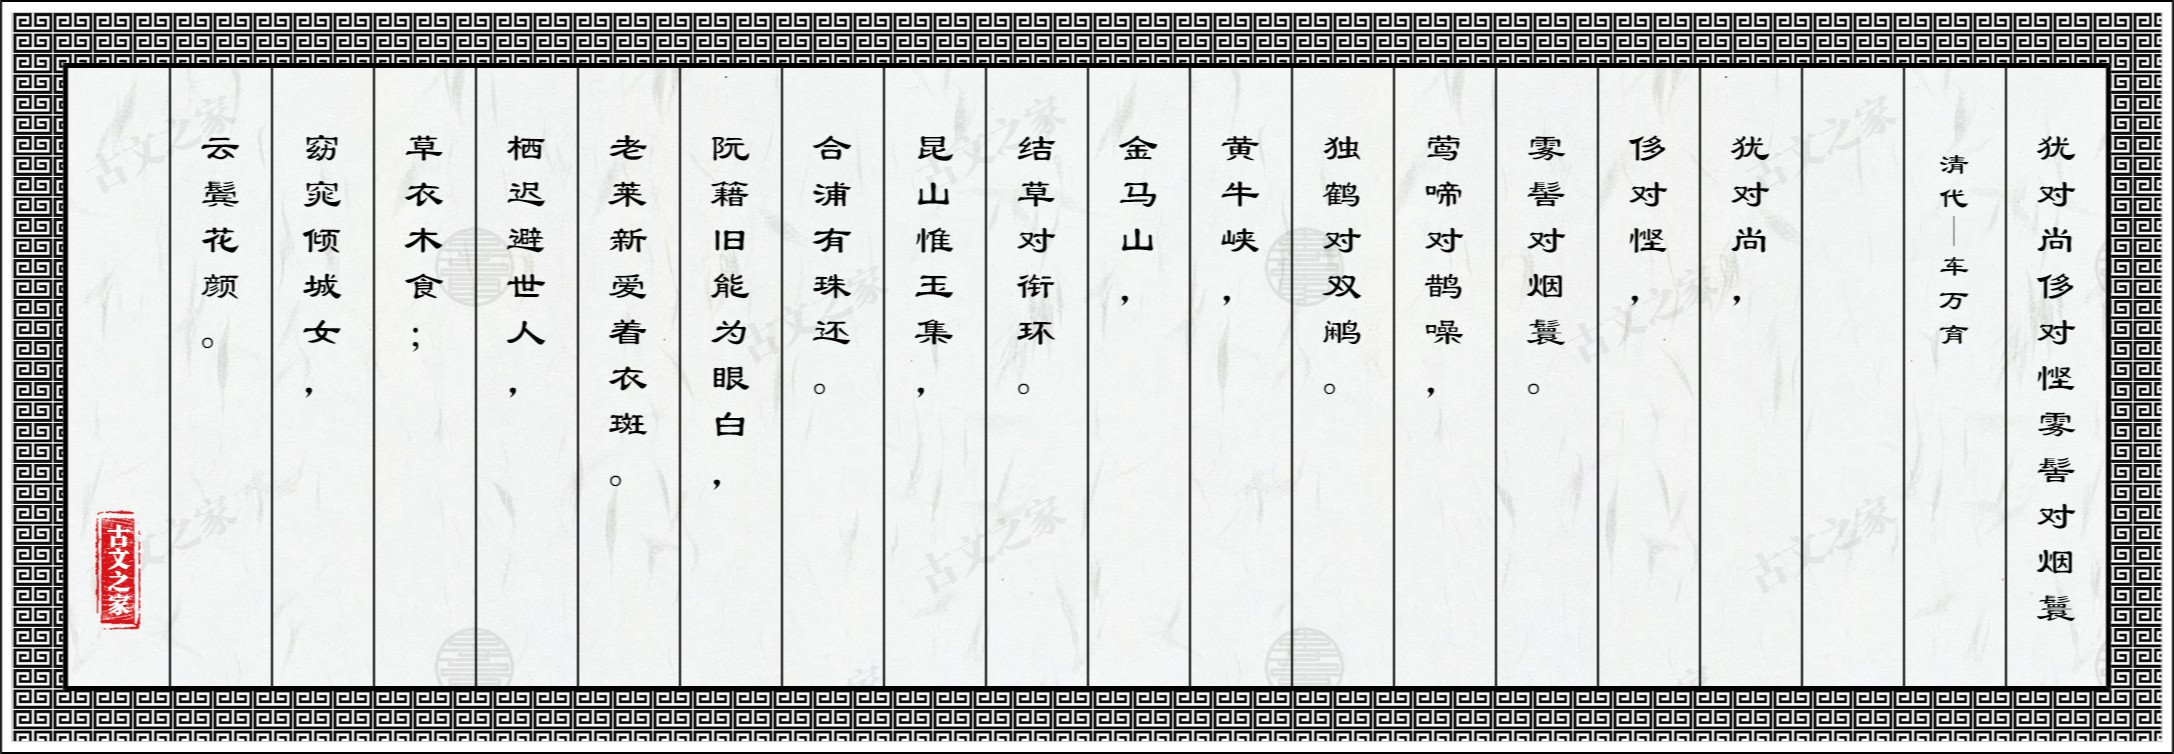 犹对尚侈对悭雾髻对烟鬟
清代—车万育
犹对尚,
侈对悭,
雾髻对烟鬟。
莺啼对鹊噪,
独鹤对双鹇。
黄牛峡,
金马山,
结草对衔环。
昆山惟玉集,
合浦有珠还。
阮藉旧能为眼白,
老莱新爱着衣斑。
栖迟避世人,
草衣木食;
窈窕倾城女,
云鬓花颜。
古文之家